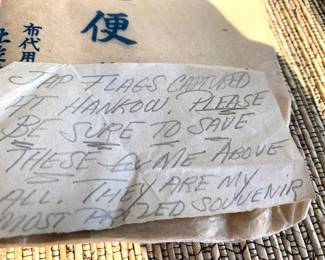 便
布代用
JAP FLAGS CAPTURED
AT HANKOW. PLEASE
BE SURE TO SAVE
THESE FOR ME ABOVE
ALL. THEY ARE MY
MOST PRIZED SOUVENIR